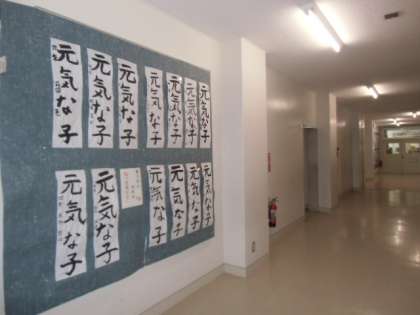 元気な子
元気な子
元気な子
元気な子
元気な子
元気な子
元気な子
元気な子
元気な子
元気な子
元気な子
元気な子
元気な子